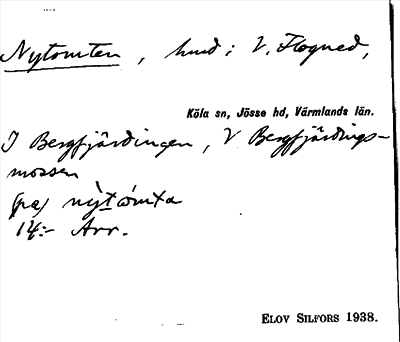 Nytomten, hmd i V. Flogned,
Köla sn, Jösse hd, Värmlands län.
I Bergfjärdingen, V Bergfjärdings-
mossen
(på) nỳtómta
14:- Arr.
ELOV SILFORS 1938.